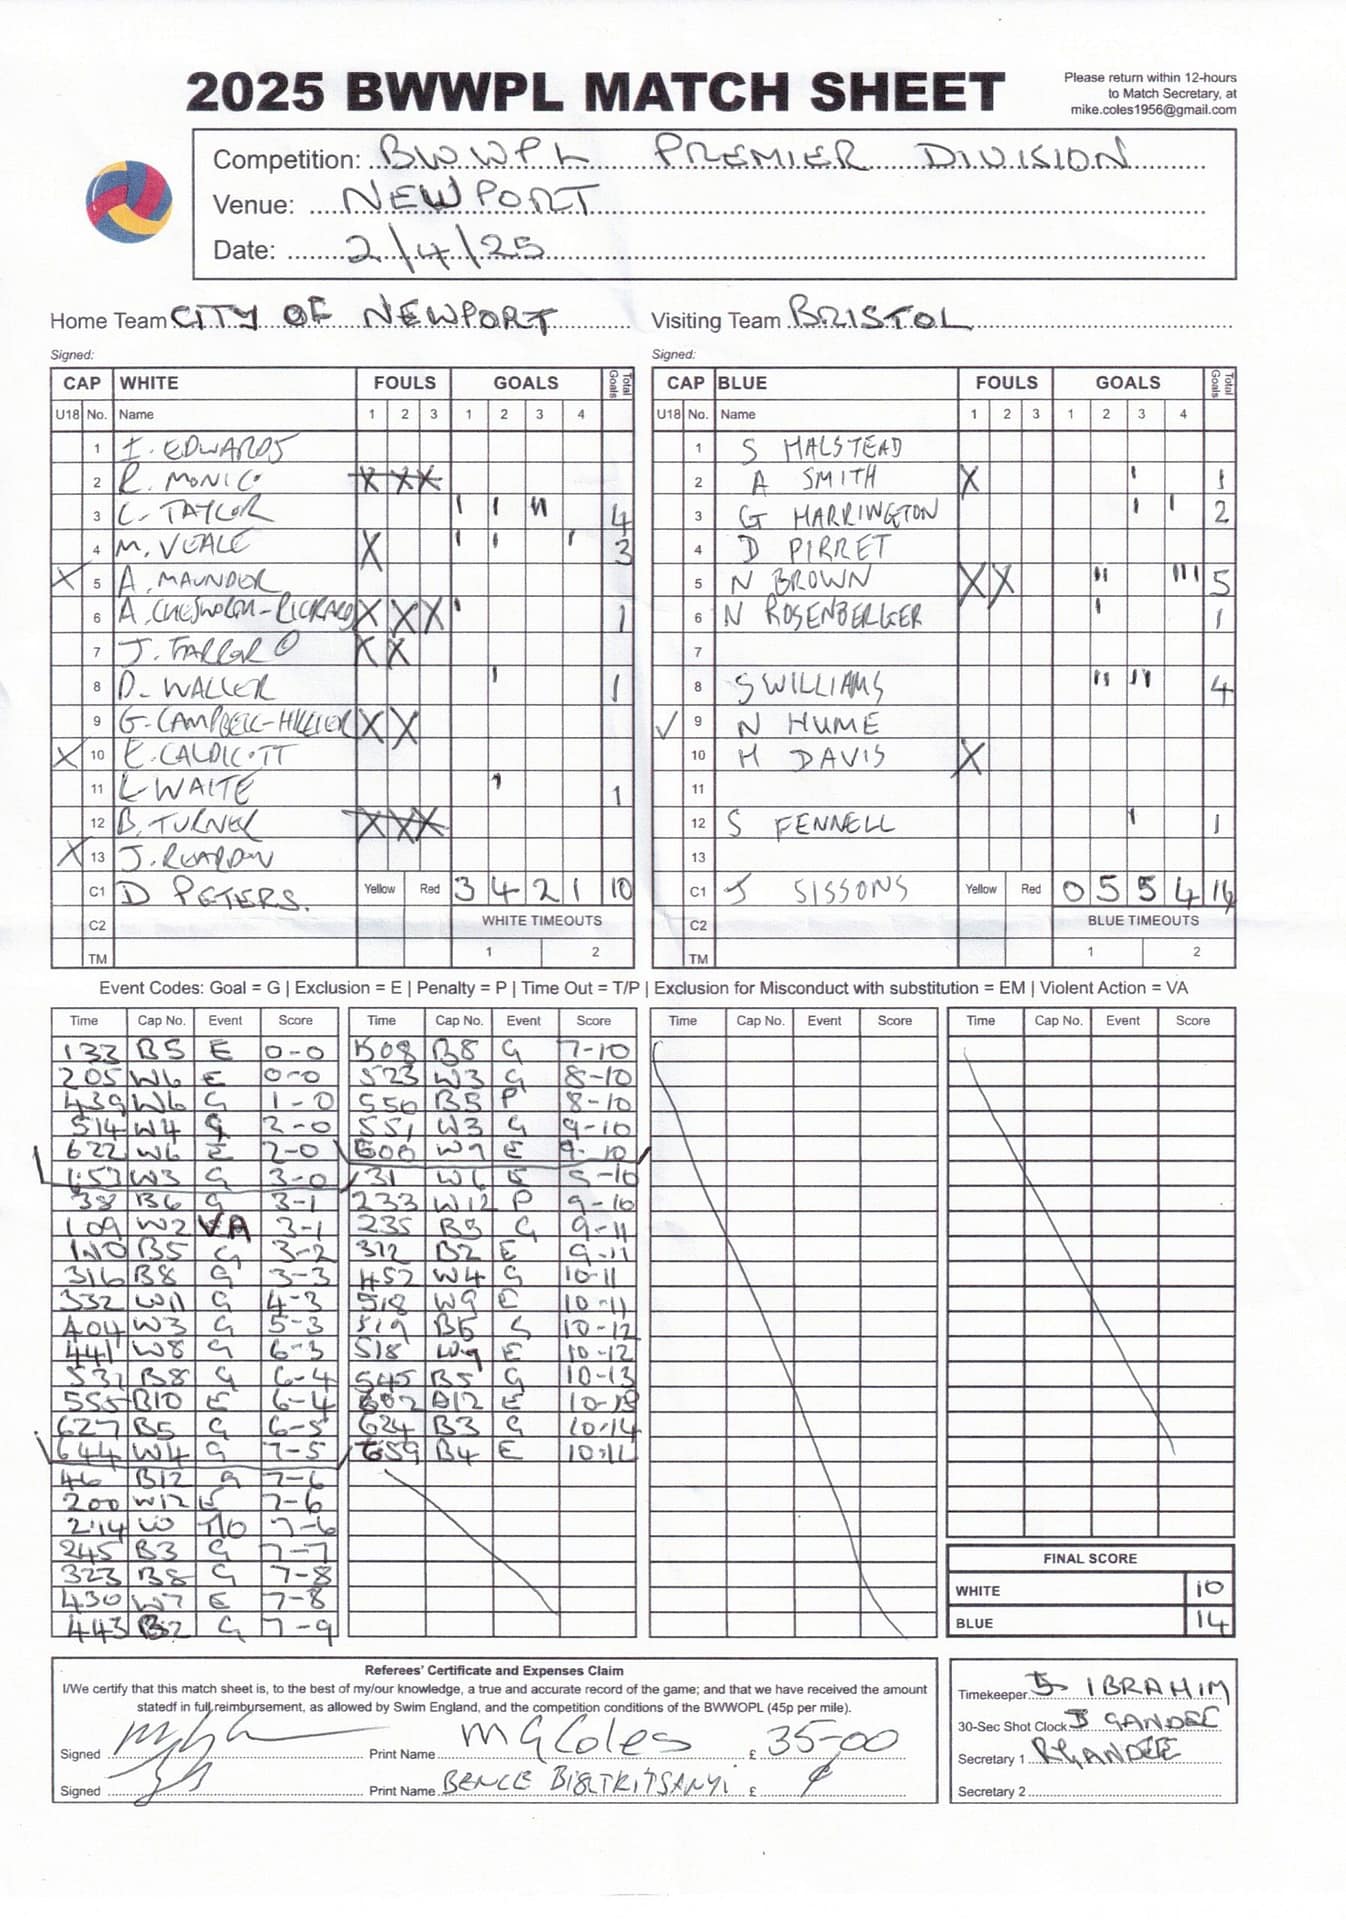 2025 BWWPL MATCH SHEET
Please return within 12-hours
to Match Secretary, at
mike.coles1956@gmail.com
Competition: BWWPL PREMIER DIVISION
Venue: NEWPORT
Date: 2/4/25
Home Team CITY OF NEWPORT
Visiting Team BRISTOL
Signed:
Signed:
CAP WHITE FOULS GOALS Total Goals
U18 No. Name 1 2 3 1 2 3 4
1 I. EDWARDS
2 R. MONICO XXX
3 C. TAYLOR I I II 4
4 M. VEALE X I I I 3
X 5 A. MAUNDER
6 A. XXX I 1
7 J. FARROR © XX
8 D. WALLER I 1
9 G. CAMPBELL-HILLIER XX
X 10 E. CALDICOTT
11 L WAITE I 1
12 B. TURNER XXX
X 13 J. REARDON
C1 D PETERS. Yellow Red 3 4 2 1 10
C2 WHITE TIMEOUTS
TM 1 2
CAP BLUE FOULS GOALS Total Goals
U18 No. Name 1 2 3 1 2 3 4
1 S HALSTEAD
2 A SMITH X I 1
3 G HARRINGTON I I 2
4 D PIRRET
5 N BROWN XX II III 5
6 N ROSENBERGER I 1
7
8 S WILLIAMS II II 4
✓ 9 N HUME
10 H DAVIS X
11
12 S FENNELL I 1
13
C1 J SISSONS Yellow Red 0 5 5 4 14
C2 BLUE TIMEOUTS
TM 1 2
Event Codes: Goal = G | Exclusion = E | Penalty = P | Time Out = T/P | Exclusion for Misconduct with substitution = EM | Violent Action = VA
Time Cap No. Event Score
133 B5 E 0-0
205 W6 E 0-0
439 W6 G 1-0
514 W4 G 2-0
622 W6 E 2-0
653 W3 G 3-0
38 B6 G 3-1
109 W2 VA 3-1
110 B5 G 3-2
316 B8 G 3-3
332 W11 G 4-3
404 W3 G 5-3
441 W8 G 6-3
531 B8 G 6-4
555 B10 E 6-4
627 B5 G 6-5
644 W4 G 7-5
46 B12 G 7-6
200 W12 E 7-6
214 W T/O 7-6
245 B3 G 7-7
323 B8 G 7-8
430 W7 E 7-8
443 B2 G 7-9
Time Cap No. Event Score
508 B8 G 7-10
523 W3 G 8-10
550 B5 P 8-10
551 W3 G 9-10
600 E 9-10
31 W6 E 9-10
233 W12 P 9-10
235 B5 G 9-11
312 B2 E 9-11
452 W4 G 10-11
518 W9 E 10-11
519 B5 G 10-12
518 W9 E 10-12
545 B5 G 10-13
602 E 10-13
624 B3 G 10-14
659 B4 E 10-14
Time Cap No. Event Score
Time Cap No. Event Score
FINAL SCORE
WHITE 10
BLUE 14
Referees' Certificate and Expenses Claim
I/We certify that this match sheet is, to the best of my/our knowledge, a true and accurate record of the game; and that we have received the amount
statedf in full reimbursement, as allowed by Swim England, and the competition conditions of the BWWOPL (45p per mile).
Signed Print Name M G Coles £ 35-00
Signed Print Name BENCE £
Timekeeper IBRAHIM
30-Sec Shot Clock GANDEE
Secretary 1 R GANDEE
Secretary 2